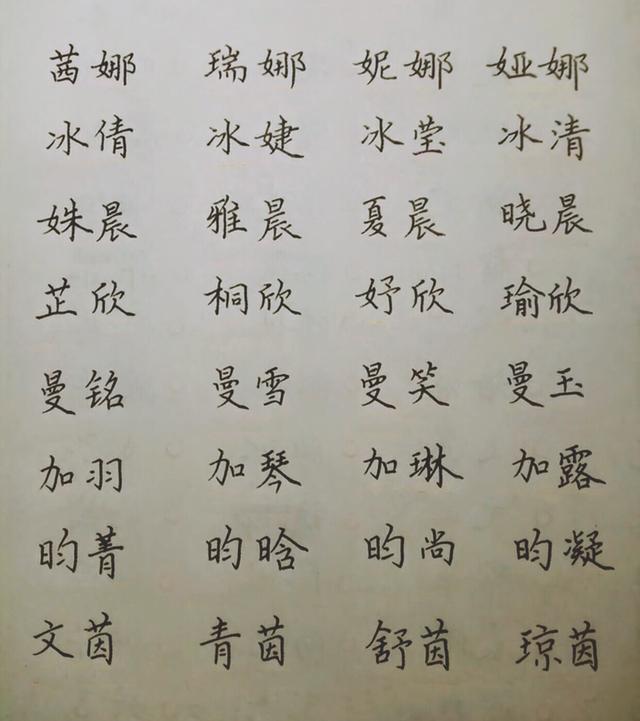 茜娜 瑞娜 妮娜 娅娜
冰倩 冰婕 冰莹 冰清
姝晨 雅晨 夏晨 晓晨
芷欣 桐欣 妤欣 瑜欣
曼铭 曼雪 曼笑 曼玉
加羽 加琴 加琳 加露
昀菁 昀晗 昀尚 昀凝
文茵 青茵 舒茵 琼茵